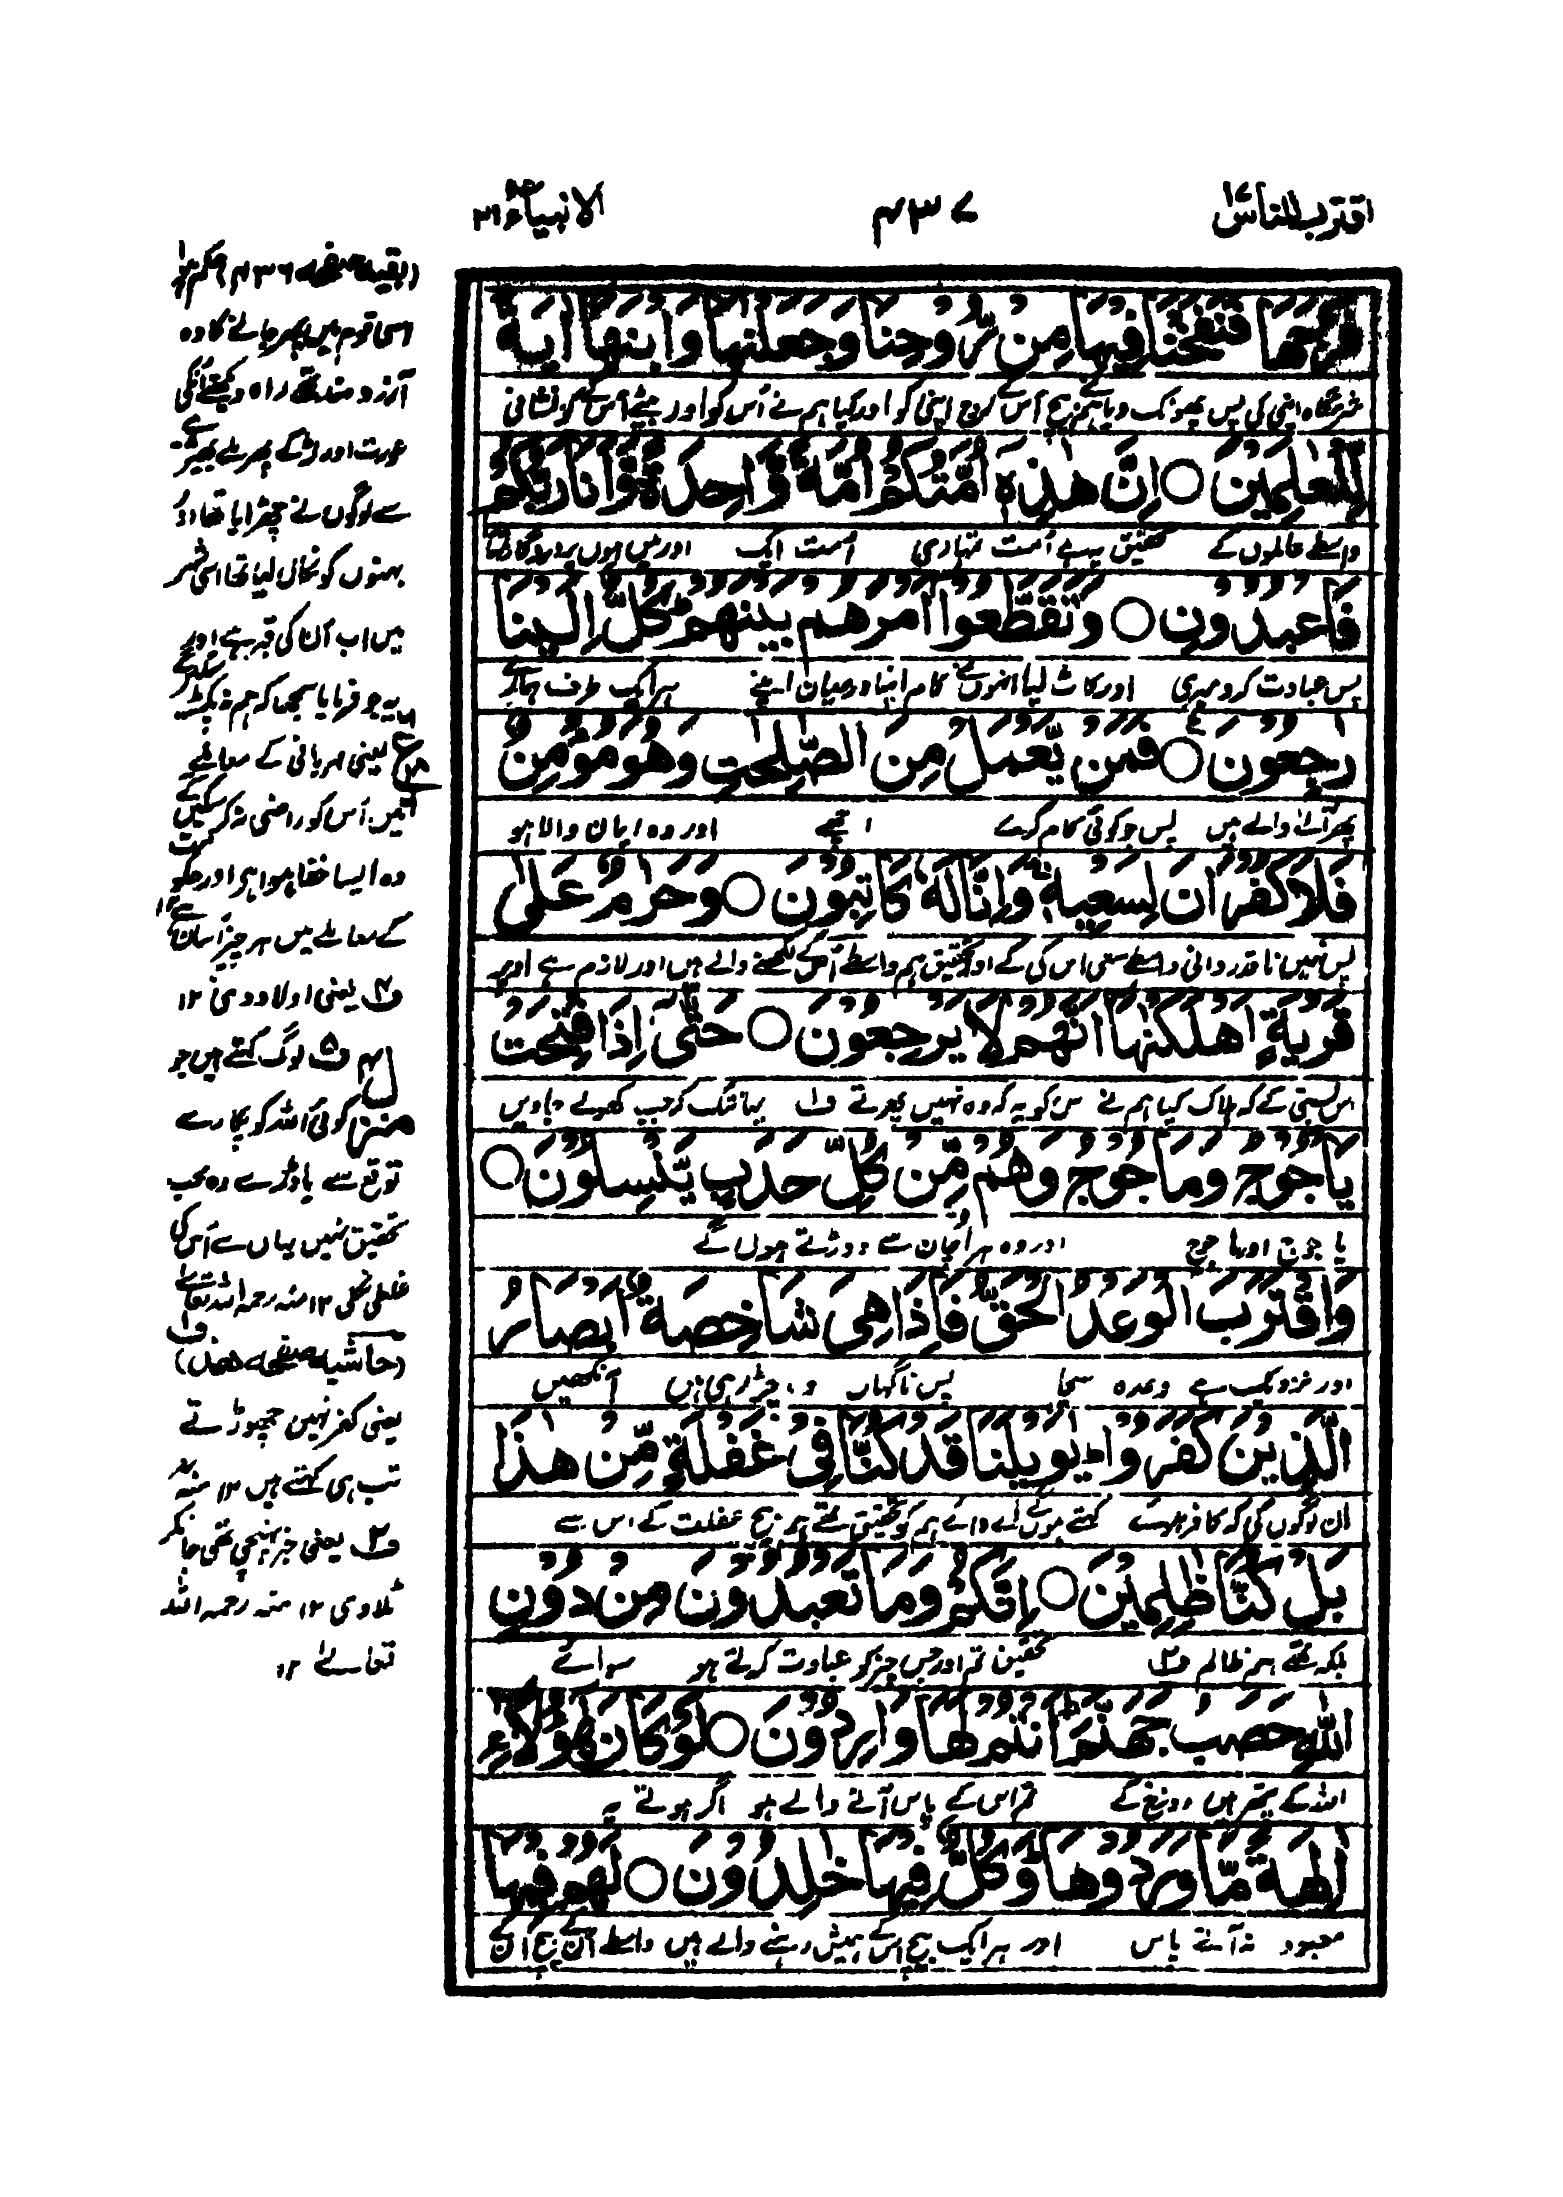 اقترب للناس ١٧
٤٣٧
الانبیاء ٢١
فَرْجَهَا فَنَفَخْنَا فِيْهَا مِنْ رُّوْحِنَا وَجَعَلْنٰهَا وَابْنَهَا اٰيَةً
شرمگاہ اپنی کی پس پھونک دیا ہم نے بیچ اُس کے روح اپنی کو اور کیا ہم نے اُس کو اور بیٹے اُس کے کو نشانی
لِّلْعٰلَمِيْنَ ○ اِنَّ هٰذِهٖ اُمَّتُكُمْ اُمَّةً وَّاحِدَةً وَّاَنَا رَبُّكُمْ
واسطے عالموں کے تحقیق یہ ہے اُمت تمہاری اُمت ایک اور میں ہوں پروردگار تمہارا
فَاعْبُدُوْنِ ○ وَتَقَطَّعُوْۤا اَمْرَهُمْ بَيْنَهُمْ كُلٌّ اِلَيْنَا
پس عبادت کرو میری اور کاٹ لیا انہوں نے کام اپنا درمیان اپنے ہر ایک طرف ہمارے
رٰجِعُوْنَ ○ فَمَنْ يَّعْمَلْ مِنَ الصّٰلِحٰتِ وَهُوَ مُؤْمِنٌ
پھر آنے والے ہیں پس جو کوئی کام کرے اچھے اور وہ ایمان والا ہو
فَلَا كُفْرَانَ لِسَعْيِهٖ وَاِنَّا لَهٗ كَاتِبُوْنَ ○ وَحَرٰمٌ عَلٰى
پس نہیں ناقدردانی واسطے سعی اس کی کے اور تحقیق ہم واسطے اُس کے لکھنے والے ہیں اور لازم ہے اوپر
قَرْيَةٍ اَهْلَكْنٰهَاۤ اَنَّهُمْ لَا يَرْجِعُوْنَ ○ حَتّٰۤى اِذَا فُتِحَتْ
اس بستی کے کہ ہلاک کیا ہم نے اس کو یہ کہ وہ نہیں پھرتے ف۱ یہانتک کہ جب کھولے جاویں
يَاْجُوْجُ وَمَاْجُوْجُ وَهُمْ مِّنْ كُلِّ حَدَبٍ يَّنْسِلُوْنَ ○
یاجوج اور ماجوج اور وہ ہر اُچان سے دوڑتے ہوں گے
وَاقْتَرَبَ الْوَعْدُ الْحَقُّ فَاِذَا هِىَ شَاخِصَةٌ اَبْصَارُ
اور نزدیک ہے وعدہ سچا پس ناگہاں وہ چڑھ رہی ہیں آنکھیں
الَّذِيْنَ كَفَرُوْا يٰوَيْلَنَا قَدْ كُنَّا فِىْ غَفْلَةٍ مِّنْ هٰذَا
ان لوگوں کی کہ کافر ہوئے کہتے ہوں گے اے وائے ہم کو تحقیق تھے ہم بیچ غفلت کے اس سے
بَلْ كُنَّا ظٰلِمِيْنَ ○ اِنَّكُمْ وَمَا تَعْبُدُوْنَ مِنْ دُوْنِ
بلکہ تھے ہم ظالم ف۲ تحقیق تم اور جس چیز کو عبادت کرتے ہو سوائے
اللّٰهِ حَصَبُ جَهَنَّمَ اَنْتُمْ لَهَا وَارِدُوْنَ ○ لَوْ كَانَ هٰۤؤُلَآءِ
اللہ کے پتھر ہیں دوزخ کے تم اس کے پاس آنے والے ہو اگر ہوتے یہ
اٰلِهَةً مَّا وَرَدُوْهَا وَكُلٌّ فِيْهَا خٰلِدُوْنَ ○ لَهُمْ فِيْهَا
معبود نہ آتے پاس اور ہر ایک بیچ اس کے ہمیش رہنے والے ہیں واسطے اُن کے بیچ اُن کے
(بقیہ صفحہ ٤٣٦) حکم ہوا
اسی قوم میں پھر جانے کا وہ
آرزومند تھے راہ دیکھتے اُنکی
عورت اور لڑکے پھر ملے بھیڑیے
سے لوگوں نے چھڑایا تھا اور
بہتوں کو نکال لیا تھا اسی شہر
میں اب اُن کی قبر ہے اور
یہ جو فرمایا سمجھا کہ ہم نہ پکڑ سکینگے
یعنی مہربانی کے معاملے
میں اُس کو راضی نہ کر سکیں گے
وہ ایسا خفا ہوا پر اور حکومت
کے معاملے میں ہر چیز آسان ہے ١٢
ف۴ یعنی اولاد دی ١٢
ف۵ لوگ کہتے ہیں جو
منزل ۴
کوئی اللہ کو پکارے
توقع سے یا ڈر سے وہ محب
تحقیق نہیں یہاں سے اُس کی
غلطی نکلی ١٢ منہ رحمہ اللہ تعالےٰ
(حاشیہ صفحہ ھذا) ف۱
یعنی کفر نہیں چھوڑتے
تب ہی کہتے ہیں ١٢ منہ
ف۲ یعنی خبر پہنچی تھی جانکر
ٹلا دی ١٢ منہ رحمہ اللہ
تعالےٰ ١٢